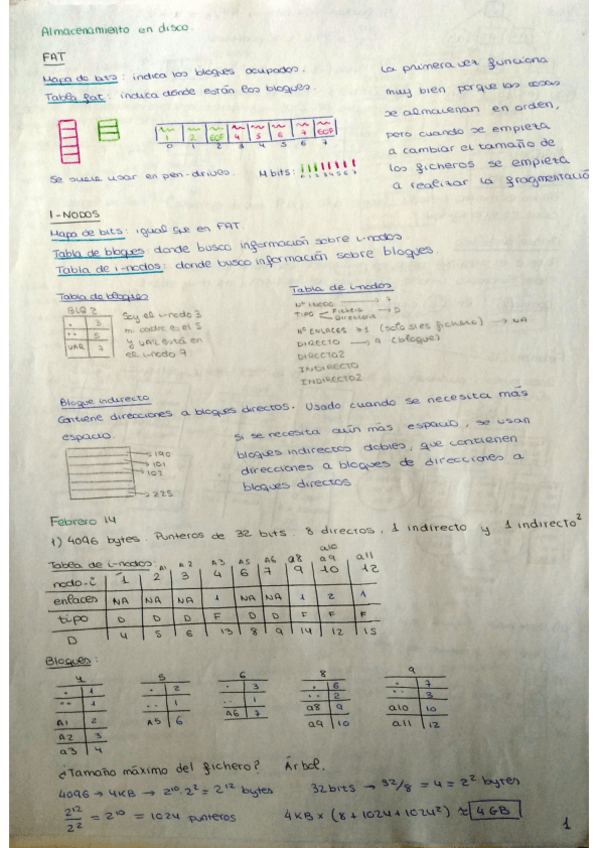 Almacenamiento en disco.
FAT
Mapa de bits: indica los bloques ocupados.
Tabla fat: indica dónde están los bloques.
1 2 EOF 4 5 6 7 EOF
0 1 2 3 4 5 6 7
Se suele usar en pen-drives. M.bits:
0 1 2 3 4 5 6 7
La primera vez funciona
muy bien porque las cosas
se almacenan en orden,
pero cuando se empieza
a cambiar el tamaño de
los ficheros se empieza
a realizar la fragmentació
I-NODOS
Mapa de bits: igual que en FAT.
Tabla de bloques: donde busco información sobre i-nodos
Tabla de i-nodos: donde busco información sobre bloques.
Tabla de bloques
BLQ 2
. 3
.. 5
UAR 7
Soy el i-nodo 3
mi padre es el 5
y UAR está en
el i-nodo 7
Tabla de i-nodos
Nº INODO → 7
TIPO Fichero Directorio → D
Nº ENLACES ≥1 (solo si es fichero) → NA
DIRECTO → 9 (bloque)
DIRECTO2
INDIRECTO
INDIRECTO2
Bloque indirecto
Contiene direcciones a bloques directos. Usado cuando se necesita más
espacio.
→ 190
→ 101
→ 102
→ 225
Si se necesita aún más espacio, se usan
bloques indirectos dobles, que contienen
direcciones a bloques de direcciones a
bloques directos
Febrero 14
1) 4096 bytes. Punteros de 32 bits. 8 directos, 1 indirecto y 1 indirecto²
Tabla de i-nodos A1 A2 A3 A5 A6 a8 a10 a9 a11
nodo-i 1 2 3 4 6 7 9 10 12
enlaces NA NA NA 1 NA NA 1 2 1
tipo D D D F D D F F F
D 4 5 6 13 8 9 14 12 15
Bloques:
4
. 1
.. 1
A1 2
A2 3
a3 4
5
. 2
.. 1
A5 6
6
. 3
.. 1
A6 7
8
. 6
.. 2
a8 9
a9 10
9
. 7
.. 3
a10 10
a11 12
¿Tamaño máximo del fichero? Árbol.
4096 → 4KB → 2¹⁰·2² = 2¹² bytes 32bits → 32/8 = 4 = 2² bytes
2¹²/2² = 2¹⁰ = 1024 punteros 4KB × (8 + 1024 + 1024²) ≈ 4 GB
1